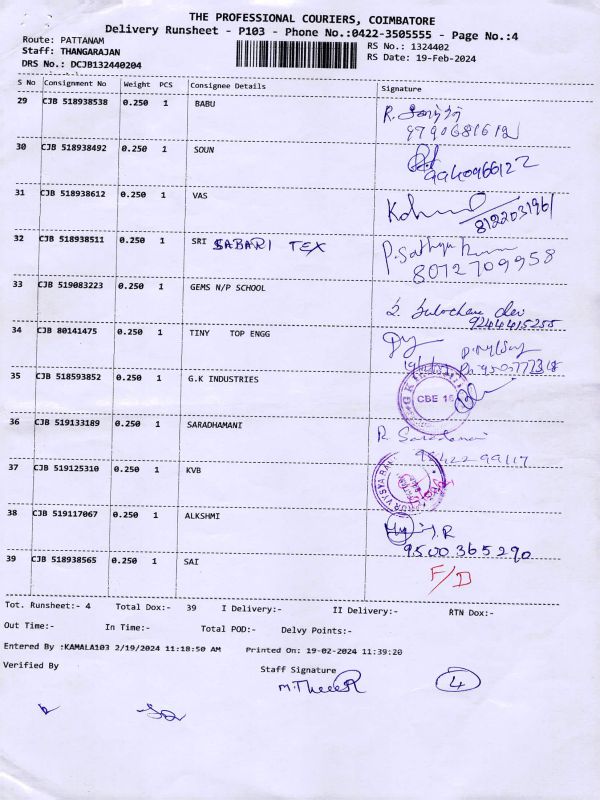 THE PROFESSIONAL COURIERS, COIMBATORE
Delivery Runsheet - P103 - Phone No.:0422-3505555 - Page No.:4
Route: PATTANAM
RS No.: 1324402
Staff: THANGARAJAN
RS Date: 19-Feb-2024
DRS No.: DCJB132440204
S No Consignment No Weight PCS Consignee Details Signature
29 CJB 518938538 0.250 1 BABU
9790681612
30 CJB 518938492 0.250 1 SOUN
9940966122
31 CJB 518938612 0.250 1 VAS
8122031961
32 CJB 518938511 0.250 1 SRI SABARI TEX
8072709958
33 CJB 519083223 0.250 1 GEMS N/P SCHOOL
9244415255
34 CJB 80141475 0.250 1 TINY TOP ENGG
35 CJB 518593852 0.250 1 G.K INDUSTRIES
CBE 16
36 CJB 519133189 0.250 1 SARADHAMANI
98422 99117
37 CJB 519125310 0.250 1 KVB
38 CJB 519117067 0.250 1 ALKSHMI
9500365290
39 CJB 518938565 0.250 1 SAI F/D
Tot. Runsheet:- 4 Total Dox:- 39 I Delivery:- II Delivery:- RTN Dox:-
Out Time:- In Time:- Total POD:- Delvy Points:-
Entered By :KAMALA103 2/19/2024 11:18:50 AM Printed On: 19-02-2024 11:39:20
Verified By Staff Signature
4